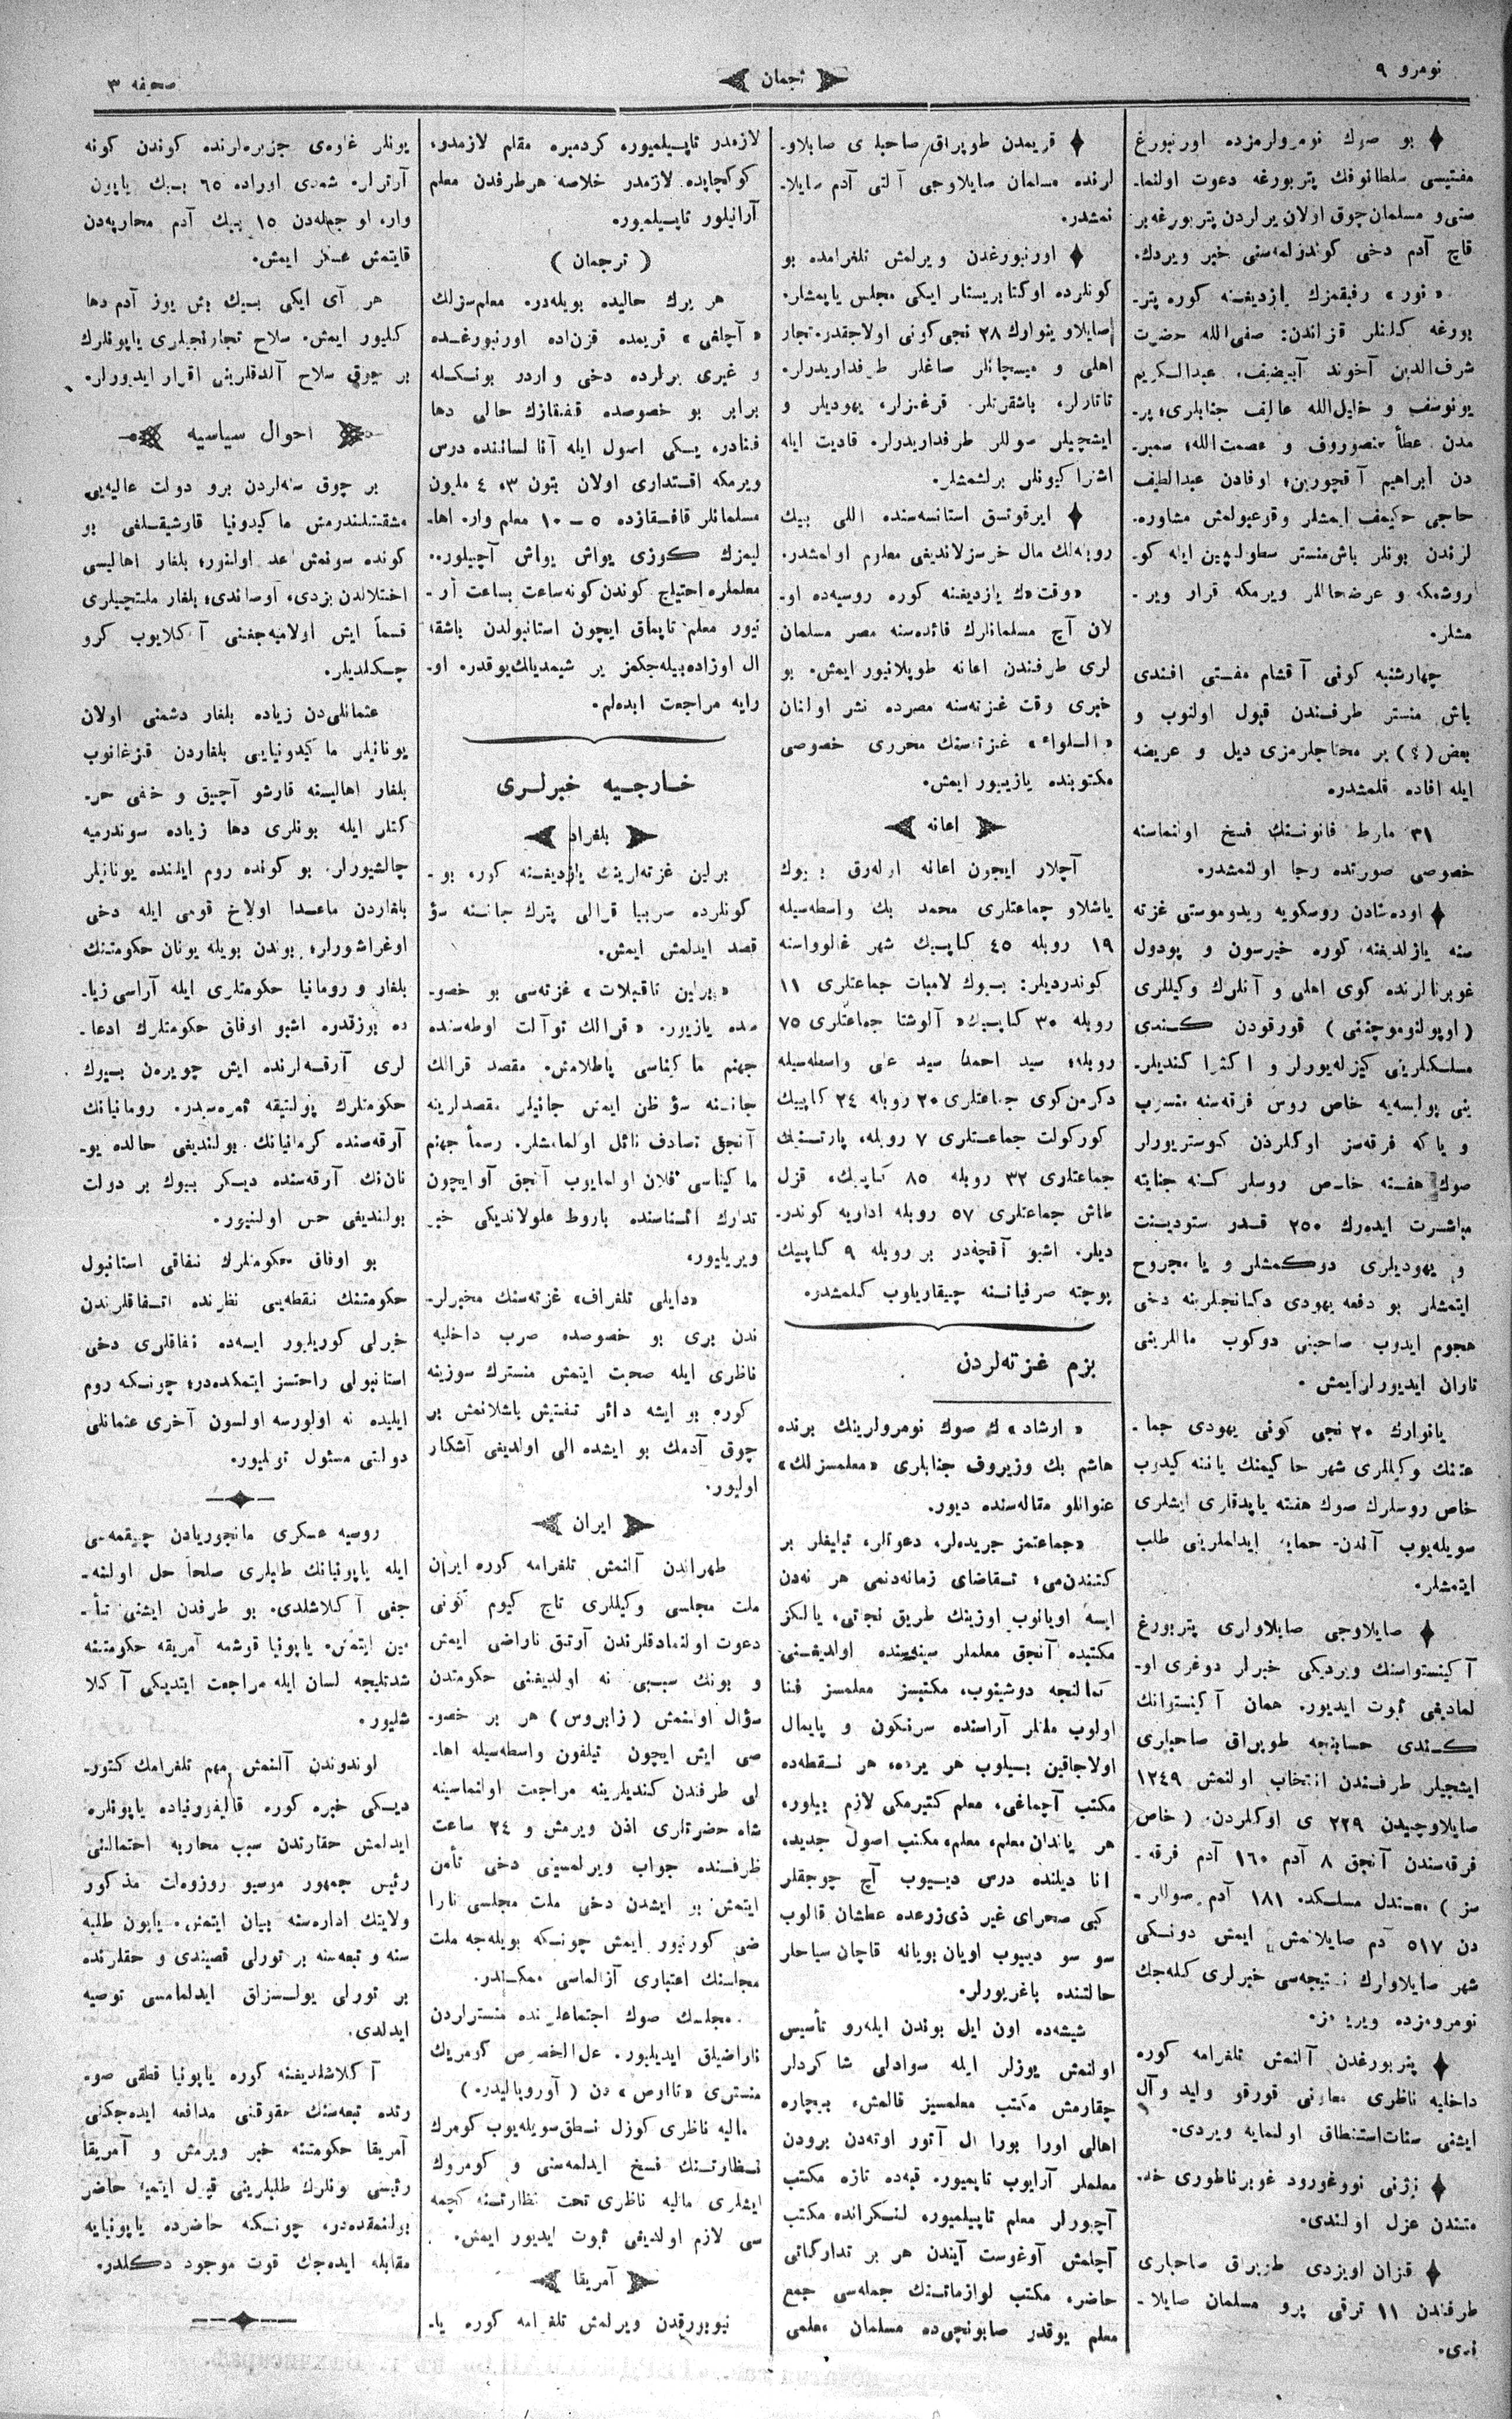 نومرو ٩
ترجمان
صحیفه ٣
بو صوك نومرولرمزده اورنبورغ
مفتیسی سلطانوفك پتربورغه دعوت اولنما-
سنی و مسلمان چوق اولان یرلردن پتربورغه بر
قاچ آدم دخی كوندرلمه‌سنی خبر ویردك.
«نور» رفیقمزك یازدیغنه كوره پتر-
بورغه كلنلر قزاندن: صفی‌الله حضرت
شرف‌الدین آخوند آبیضیف، عبدالكریم
یونوسف و خلیل‌الله عالیف جنابلری؛ پر-
مدن عطأ منصوروف و عصمت‌الله؛ سمبر-
دن ابراهیم آقچورین؛ اوفادن عبدالطیف
حاجی حكیمف ایمشلر و قرعبولمش مشاوره-
لرندن بونلر باش منستر سطولیپین ایله كو-
روشمكه و عرضحاللر ویرمكه قرار ویر-
مشلر.
چهارشنبه كونی آقشام مفتی افندی
باش منستر طرفندن قبول اولنوب و
بعض (؟) بر محتاجلرمزی دیل و عریضه
ایله افاده قلمشدر.
٣١ مارط قانوننك فسخ اولنماسنه
خصوصی صورتده رجا اولنمشدر.
اوده‌سادن روسكویه ویدوموستی غزته
سنه یازلدیغنه كوره خیرسون و پودول
غوبرنالرنده كوی اهلی و آنلرك وكیللری
(اوپولنوموچننی) قورقودن كندی
مسلكلرینی كیزله‌یورلر و اكثرا كندیلر-
ینی پوایسه‌یه خاص روس فرقه‌سنه منسوب
و یاكه فرقه‌سز اوكلردن كوستریورلر
صوك هفته خاص روسلر كنه جنایته
مباشرت ایده‌رك ٢٥٠ قدر ستودینت
و یهودیلری دوكمشلر و یا مجروح
ایتمشلر بو دفعه یهودی دكانجلرینه دخی
هجوم ایدوب صاحبنی دوكوب ماللرینی
تاران ایدیورلر ایمش.
یانوارك ٢٠ نجی كونی یهودی جما-
عتنك وكیللری شهر حاكیمنك یاننه كیدوب
خاص روسلرك صوك هفته یاپدقاری ایشلری
سویله‌یوب آندن حمایه ایدلملرینی طلب
ایتمشلر.
صایلاوجی صایلاولری پتربورغ
آكینستواسنك ویردیكی خبرلر دوغری او-
لمادیغی ثبوت ایدیور. همان آكینستوانك
كندی حسابنجه طوپراق صاحبلری
ایشجیلر طرفندن انتخاب اولنمش ١٢٤٩
صایلاوچیدن ٢٢٩ ی اوكلردن. (خاص
فرقه‌سندن آنجق ٨ آدم ١٦٠ آدم فرقه-
سز) معتدل مسلكد. ١٨١ آدم صوللر-
دن ٥١٧ آدم صایلانمش ایمش دونكی
شهر صایلاوارك نتیجه‌سی خبرلری كله‌جك
نومرومزده ویریرمز.
پتربورغدن آلنمش تلغرامه كوره
داخلیه ناظری معاونی قورقو ولید وآل
ایشنی سنات استنطاق اولنمایه ویردی.
نژنی نووغورود غوبرناطوری خد-
متندن عزل اولندی.
قزان اویزدی طوپراق صاحبلری
طرفندن ١١ ترقی پرو مسلمان صایلا-
ندی.
قریمدن طوپراق صاحبلری صایلاو-
لرنده مسلمان صایلاوجی آلتی آدم صایلا-
نمشدر.
اورنبورغدن ویرلمش تلغرامده بو
كونلرده اوكتابریستار ایكی مجلس یاپمشلر.
صایلاو ینوارك ٢٨ نجی كونی اولاجقدر. تجار
اهلی و میسچانلر صاغلر طرفداریدرلر.
تاتارلر، باشقرتلر. قرغزلر، یهودیلر و
ایشچیلر صوللر طرفداریدرلر. قادیت ایله
اشتراكیونلر برلشمشلر.
ایرقوتسق استانسه‌سنده اللی بیك
روبله‌لك مال خرسزلاندیغی معلوم اولمشدر.
«وقت»ك یازدیغنه كوره روسیه‌ده او-
لان آچ مسلمانلرك فائده‌سنه مصر مسلمان
لری طرفندن اعانه طوپلانیور ایمش. بو
خبری وقت غزته‌سنه مصرده نشر اولنان
«اللواء» غزته‌سنك محرری خصوصی
مكتوبنده یازیبور ایمش.
اعانه
آچلار ایچون اعانه اوله‌رق بیوك
یاشلاو جماعتلری محمد بك واسطه‌سیله
١٩ روبله ٤٥ كاپیك شهر غالوواسنه
كوندردیلر: بیوك لامبات جماعتلری ١١
روبله ٣٠ كاپیك، آلوشتا جماعتلری ٧٥
روبله؛ سید احمد سید علی واسطه‌سیله
دكرمن كوی جماعتلری ٢٠ روبله ٢٤ كاپیك
كوركولت جماعتلری ٧ روبله، پارتنیك
جماعتلری ٣٢ روبله ٨٥ كاپیك، قزل
طاش جماعتلری ٥٧ روبله اداریه كوندر-
دیلر. اشبو آقچه‌در بر روبله ٩ كاپیك
پوچته صرفیاتنه چیقاریلوب كلمشدر.
بزم غزته‌لردن
«ارشاد»ك صوك نومرولرینك برنده
هاشم بك وزیروف جنابلری «معلمسزلك»
عنوانلو مقاله‌سنده دیور.
«جماعتمز جریده‌لر، دعوتلر، تبلیغلر بر
كتندن‌می؛ تقاضای زمانه‌دنمی هر نه‌دن
ایسه اویانوب اوزینك طریق نجاتی، یالكز
مكتبده آنجق معلملر سینه‌سنده اولدیغنی
كمالنجه دوشینوب، مكتبسز معلمسز فنا
اولوب ملتلر آراسنده سرنكون و پایمال
اولاجاقین بیلوب هر یرده، هر نقطه‌ده
مكتب آچماغی، معلم كتیرمكی لازم بیلور،
هر یاندان معلم، معلم، مكتب اصول جدید،
انا دیلنده درس دییوب آچ چوجقلر
كبی صحرای غیر ذی زرعده عطشان قالوب
سو سو دییوب اویان بویانه قاچان سیاحلر
حالتنده باغریورلر.
شیشه‌ده اون ایل بوندن ایله‌رو تأسیس
اولنمش یوزلر ایله سوادلی شاكردلر
چقارمش مكتب معلمسیز قالمش، بیچاره
اهالی اورا بورا ال آتور اوته‌دن برودن
معلملر آرایوب تاپمیور. قبه‌ده تازه مكتب
آچیورلر معلم تاپیلمیور، لنكرانده مكتب
آچلمش آوغوست آیندن هر بر تداركاتی
حاضر، مكتب لوازماتنك جمله‌سی جمع
معلم یوقدر صابونچی‌ده مسلمان معلمی
لازمدر تاپیلمیور، كردمیره مقلم لازمدر،
كوكچایده لازمدر خلاصه هر طرفدن معلم
آرانیلور تاپیلمیور.
(ترجمان)
هر یرك حالیده بویله‌در. معلم‌سزلك
«آچلغی» قریمده قزن‌اده اورنبورغده
و غیری یرلرده دخی واردر بونكله
برابر بو خصوصده قفقازك حالی دها
فنادر، یسكی اصول ایله آنا لساننده درس
ویرمكه اقتداری اولان بتون ٣، ٤ ملیون
مسلمانلر قافقازده ٥ – ١٠ معلم وار. اها-
لیمزك كوزی یواش یواش آچیلور..
معلملره احتیاج كوندن كونه ساعت بساعت آر-
تیور معلم تاپماق ایچون استانبولدن باشقه؛
ال اوزاده‌بیله‌جكمز یر شیمدیلك یوقدر. او-
رایه مراجعت ایده‌لم.
خارجیه خبرلری
بلغراد
برلین غزته‌لرینك یازدیغنه كوره بو-
كونلرده صربیا قرالی پترك جاننه سؤ
قصد ایدلمش ایمش.
«برلین تاقبلات» غزته‌سی بو خصو-
صده یازیور. «قرالك توآلت اوطه‌سنده
جهنم ماكیناسی پاطلامش. مقصد قرالك
جاننه سؤ ظن ایمش جانیلر مقصدلرینه
آنجق تصادف نائل اولمامشلر. رسماً جهنم
ماكیناسی فلان اولمایوب آنجق آو ایچون
تدارك اثناسنده باروط علولاندیكی خبر
ویریلیور.
«دایلی تلغراف» غزته‌سنك مخبرلر-
ندن بری بو خصوصده صرب داخلیه
ناظری ایله صحبت ایتمش منسترك سوزینه
كوره بو ایشه دائر تفتیش باشلانمش بر
چوق آدمك بو ایشده الی اولدیغی آشكار
اولیور.
ایران
طهراندن آلنمش تلغرامه كوره ایران
ملت مجلسی وكیللری تاج كیوم كونی
دعوت اولنمادقلرندن آرتق ناراضی ایمش
و بونك سببی نه اولدیغنی حكومتدن
سؤال اولنمش (زاپروس) هر بر خصو-
صی ایش ایچون تیلفون واسطه‌سیله اها-
لی طرفندن كندیلرینه مراجعت اولنماسینه
شاه حضرتلری اذن ویرمش و ٢٤ ساعت
ظرفنده جواب ویرلمسینی دخی تأمن
ایتمش بو ایشدن دخی ملت مجلسی نارا
ضی كورنیور ایمش چونكه بویله‌جه ملت
مجلسنك اعتباری آزالماسی ممكندر.
مجلسك صوك اجتماعلرنده منسترلردن
ناراضیلق ایدیلیور. عل الخصوص كومریك
منستری «ناؤص» دن (آوروپالیدر.)
مالیه ناظری كوزل نطق سویله‌یوب كومرك
نظارتنك فسخ ایدلمه‌سنی و كومروك
ایشلری مالیه ناظری تحت نظارتنه كچمه
سی لازم اولدیغی ثبوت ایدیور ایمش.
آمریقا
نیویورقدن ویرلمش تلغرامه كوره یا-
پونلر غاوه‌ی جزیره‌لرنده كوندن كونه
آرتزلر. شمدی اوراده ٦٥ بیك یاپون
وار، او جمله‌دن ١٥ بیك آدم محاربه‌دن
قایتمش عسكر ایمش.
هر آی ایكی بیك بش یوز آدم دها
كلیور ایمش. سلاح تجارتجیلری یاپونلرك
بر چوق سلاح آلدقلرینی اقرار ایدیورلر.
احوال سیاسیه
بر چوق سنه‌لردن برو دولت عالیه‌یی
مشقتلندرمش ماكیدونیا قارشیقلغی بو
كونده سونمش عد اولنور؛ بلغار اهالیسی
اختلالدن بزدی، اوصاندی؛ بلغار ملتچیلری
قسماً ایش اولامیه‌جغنی آكلایوب كرو
چكلدیلر.
عثمانلی‌دن زیاده بلغار دشمنی اولان
یونانیلر ماكیدونیایی بلغاردن قزغانوب
بلغار اهالیسنه قارشو آچیق و خفی حر-
كتلر ایله بونلری دها زیاده سوندرمیه
چالشیورلر. بو كونده روم ایلنده یونانیلر
بلغاردن ماعدا اولاخ قومی ایله دخی
اوغراشورلر؛ بوندن بویله یونان حكومتنك
بلغار و رومانیا حكومتلری ایله آراسی زیا-
ده بوزقدر. اشبو اوفاق حكومتلرك ادعا-
لری آرقه‌لرنده ایش چویره‌ن بیوك
حكومتلرك پولتیقه ثمره‌سیدر. رومانیانك
آرقه‌سنده كرمانیانك بولندیغی حالده یو-
نان‌ك آرقه‌سنده دیكر بیوك بر دولت
بولندیغی حس اولنیور.
بو اوفاق حكومتلرك نفاقی استانبول
حكومتنك نقطه‌یی نظرنده اتفاقلرندن
خیرلی كوریلیور ایسه‌ده نفاقلری دخی
استانبولی راحتسز ایتمكده‌در؛ چونكه روم
ایلیده نه اولورسه اولسون آخری عثمانلی
دولتی مسئول توتلیور.
روسیه عسكری مانجوریادن چیقمه‌سی
ایله یاپونیانك طلبلری صلحاً حل اولنه-
جغی آكلاشلدی. بو طرفدن ایشنی تأ-
مین ایتمش یاپونیا قوشمه آمریقه حكومتنه
شدتلیجه لسان ایله مراجعت ایتدیكی آكلا
شلیور.
لوندوندن آلنمش مهم تلغرامك كتور-
دیكی خبره كوره قالیفورنیاده یاپونلره
ایدلمش حقارتدن سبب محاربه احتمالنی
رئیس جمهور موسیو روزوه‌لت مذكور
ولایتك اداره‌سنه بیان ایتمش. یاپون طلبه
سنه و تبعه‌سنه بر تورلی قصیندی و حقلرنده
بر تورلی یولسزلق ایدلمامسی توصیه
ایدلدی.
آكلاشلدیغنه كوره یاپونیا قطقی صو-
رتده تبعه‌سنك حقوقنی مدافعه ایده‌جكنی
آمریقا حكومتنه خبر ویرمش و آمریقا
رئیسی بونلرك طلبلرینی قبول ایتمیه حاضر
بولنمقده‌در، چونكه حاضرده یاپونیایه
مقابله ایده‌جك قوت موجود دكلدر.